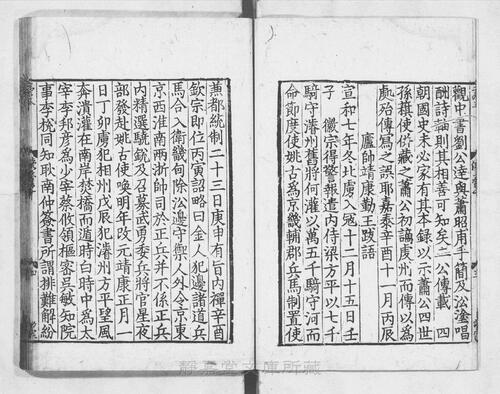 觀中書劉公逵與蕭昭甫手簡及淦唱
酬詩論則其相善可知矣二公傳載 四
朝國史未必家有其本錄以示蕭公四世
孫使併藏之蕭公初謫虔州而傳以為
處殆傳寫之誤耶嘉泰辛酉十一月丙辰
盧師靖康勤王跋語
宣和七年冬北虜入冦十二月十五日壬
子 徽宗得警報遣内侍梁方平以七千
騎守濬州舊將何灌以萬五千騎守河而
命節度使姚古為京畿輔郡兵馬制置使
燕都統制二十三日庚申有旨内禪辛酉
欽宗即位丙寅詔略曰金人犯邊諸道兵
馬合入衛畿甸除㳂邊守禦人外令京東
京西淮南兩浙帥司於正兵并不係正兵
内精選驍銳及召募武勇委兵將官星夜
部發赴姚古使喚明年改元靖康正月一
日丁卯虜犯相州戊辰犯濬州方平望風
奔潰灌在南岸焚橋而遁時白時中為太
宰李邦彦為少宰蔡攸領樞密吳敏知院
事李梲同知耿南仲簽書所謂排難解紛
靜嘉堂文庫所藏